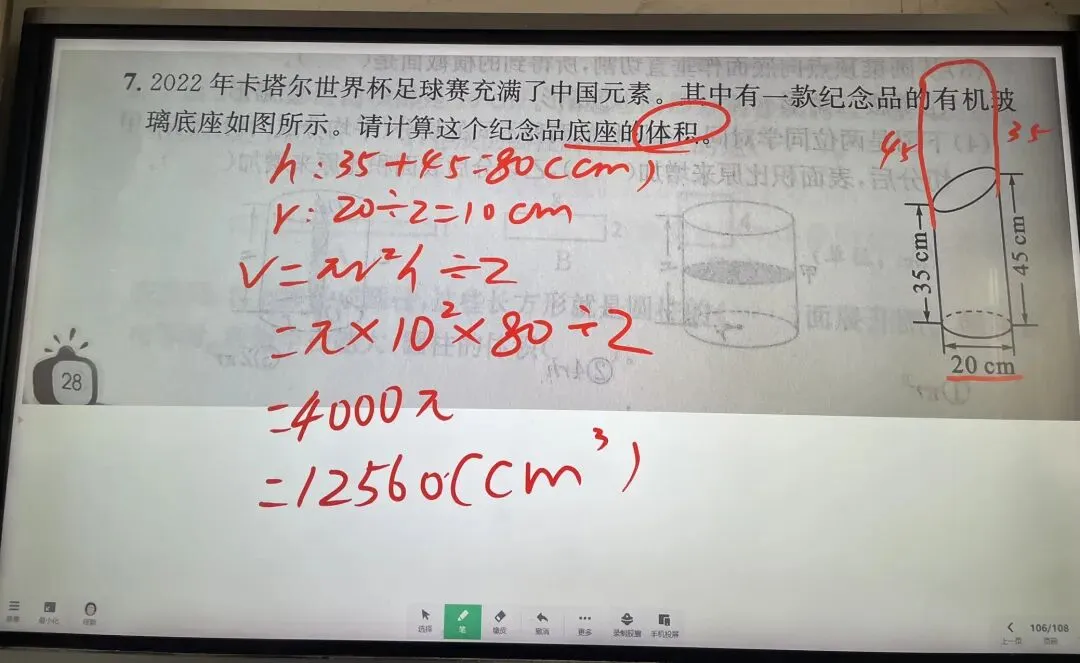 7. 2022 年卡塔尔世界杯足球赛充满了中国元素。其中有一款纪念品的有机玻
璃底座如图所示。请计算这个纪念品底座的体积。
h:35+45=80(cm)
r:20÷2=10cm
V=πr²h÷2
=π×10²×80÷2
=4000π
=12560(cm³)
45
35
35 cm
45 cm
20 cm
28
选择
笔
橡皮
撤消
更多
录制胶囊
手机投屏
106/108
上一页